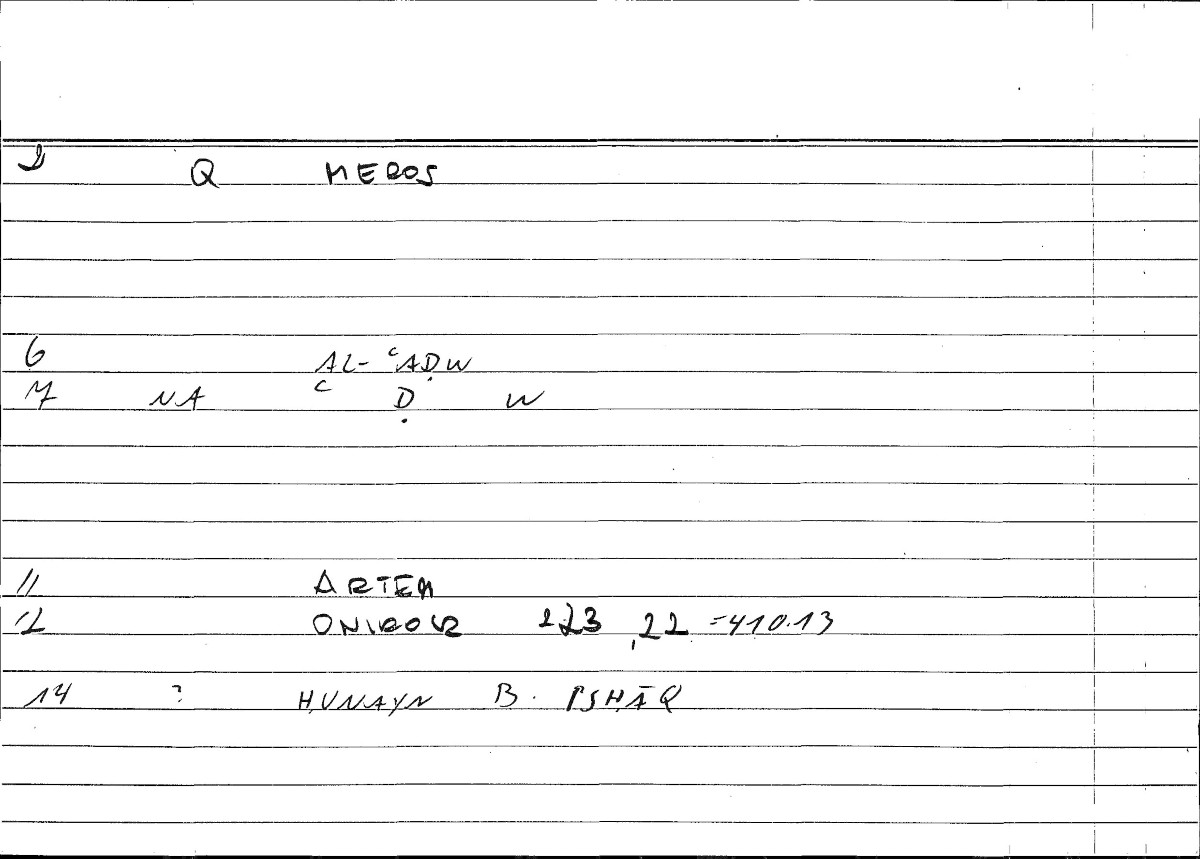 2 Q MEROS
6 AL-ʿAḌW
7 NA ʿ Ḍ W
11 ARTEM
12 ONIROCR 223,22 =410.13
14 ? ḤUNAYN B. ISḤĀQ